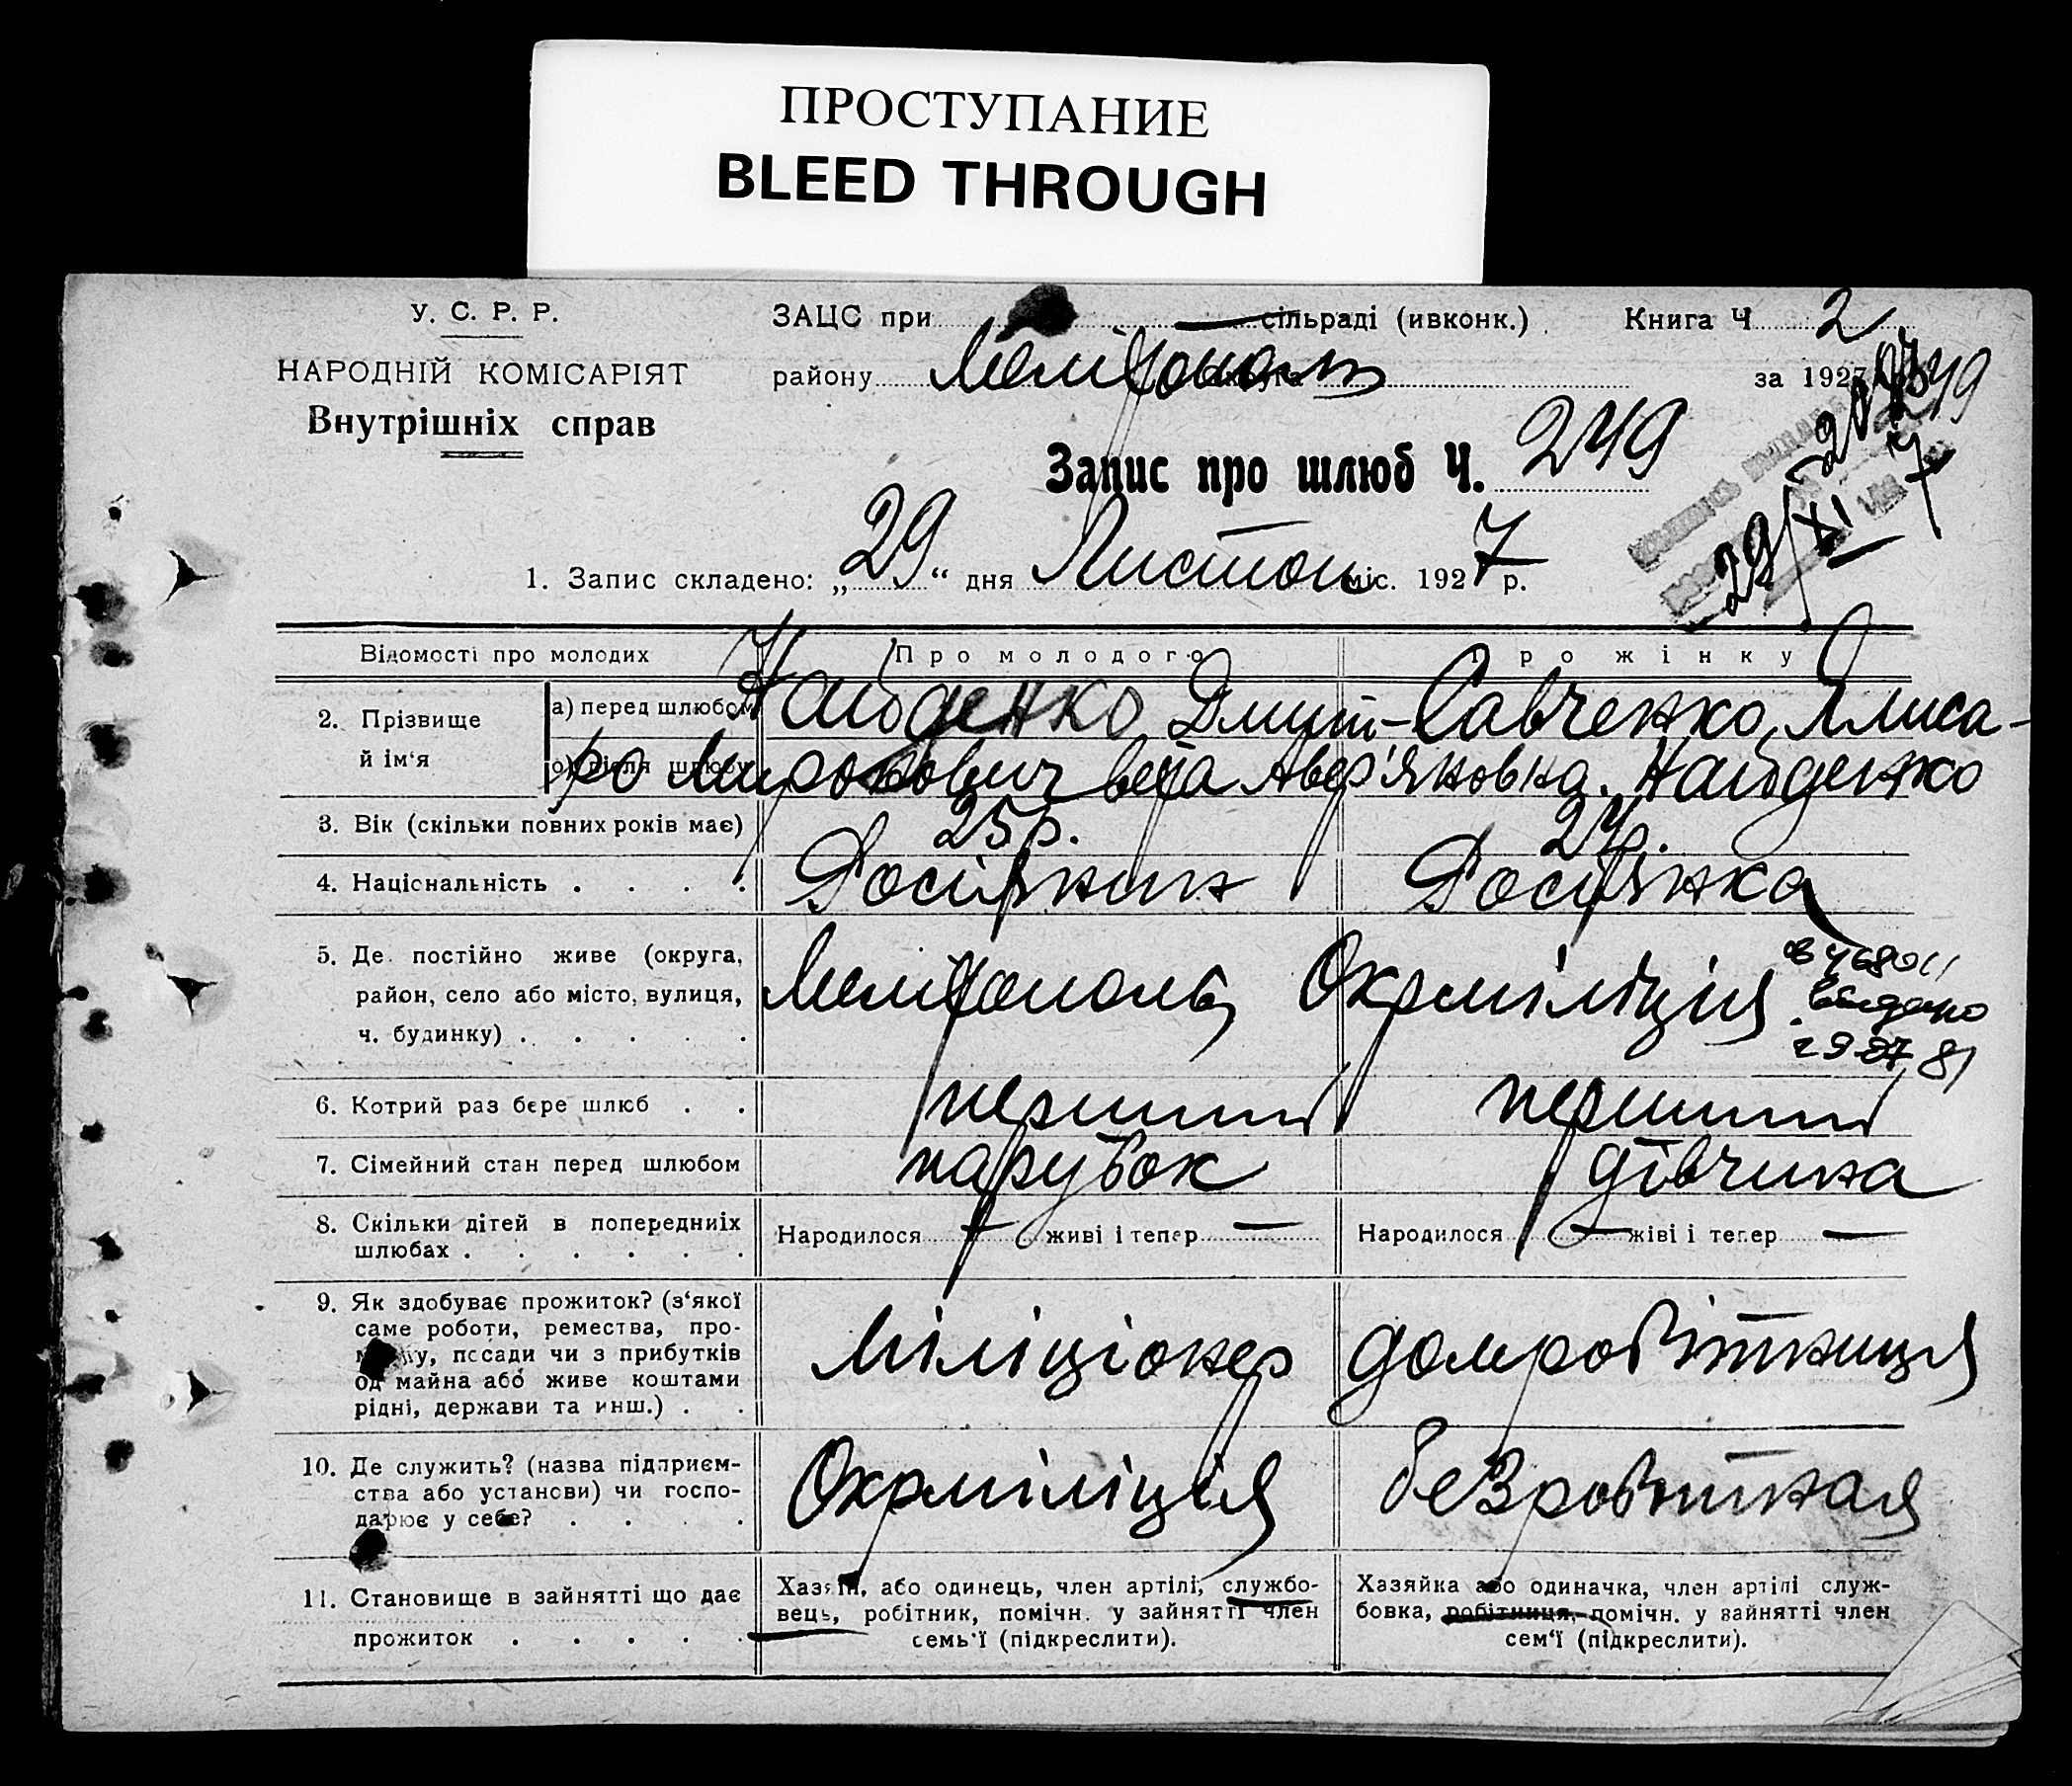 ПРОСТУПАНИЕ
BLEED THROUGH
У. С. Р. Р.
НАРОДНІЙ КОМІСАРІЯТ
Внутрішніх справ
ЗАЦС при сільраді (ивконк.)
Книга Ч 2
району Мелітополь
за 1927
Запис про шлюб Ч. 249
29/XI 7
1. Запис складено: „29“ дня Листоп міс. 1927 р.
Відомості про молодих
Про молодого
Про жінку
2. Прізвище й ім‘я
а) перед шлюбом
Найденко Дмит-
ро Миронович
Савченко, Лиса-
вета Авер'яновна. Найденко
3. Вік (скільки повних років має)
25 р.
24 р.
4. Національність . . . .
Росіянин
Росіянка
5. Де постійно живе (округа,
район, село або місто, вулиця,
ч. будинку) . . . . .
Мелітополь, Окрміліція
видано
6. Котрий раз бере шлюб . .
перший
перший
7. Сімейний стан перед шлюбом
парубок
дівчина
8. Скільки дітей в попередниіх
шлюбах . . . . . .
Народилося — живі і тепер —
Народилося — жіві і тепер —
9. Як здобуває прожиток? (з‘якої
саме роботи, ремества, про-
у, посади чи з прибутків
од майна або живе коштами
рідні, держави та инш.) . .
Міліціонер
домробітниця
10. Де служить? (назва підприєм-
ства або установи) чи госпо-
дарює у себе? . . . .
Окрміліція
безробітная
11. Становище в зайнятті що дає
прожиток . . . . .
Хазяїн, або одинець, член артілі, службо-
вець, робітник, помічн. у зайнятті член
семь‘ї (підкреслити).
Хазяйка або одиначка, член артілі служ-
бовка, робітниця, помічн. у зайнятті член
сем‘ї (підкреслити).